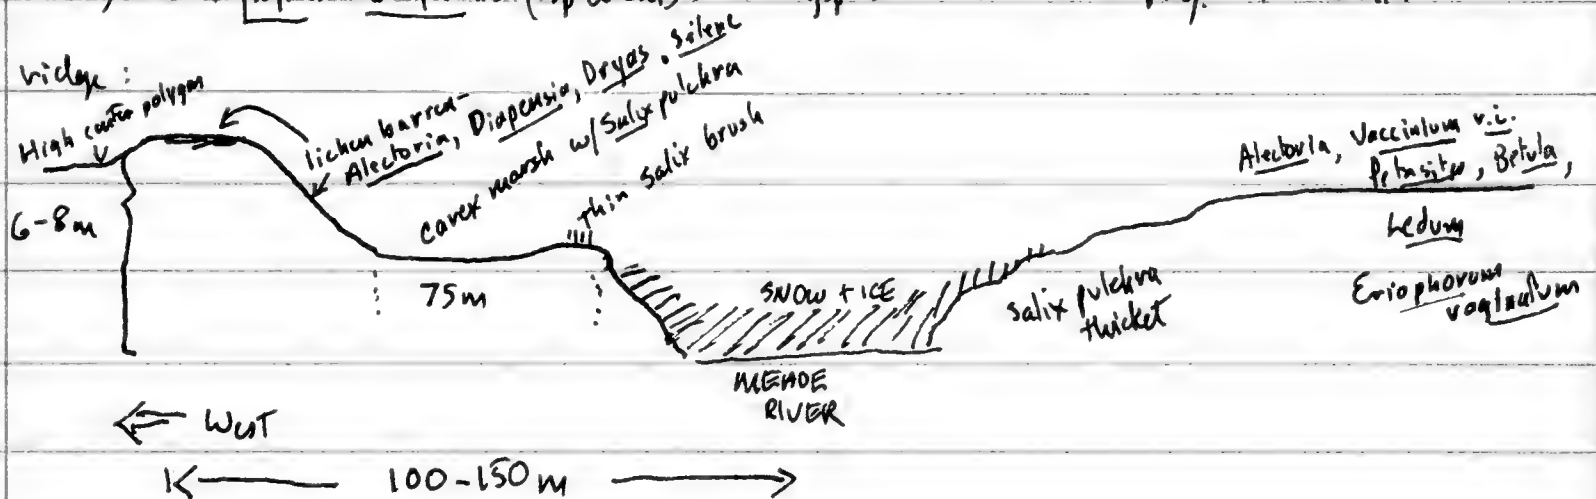 ridge :
High center polygon
lichen barren-
Alectoria, Diapensia, Dryas, Silene
carex marsh w/ Salix pulchra
thin salix brush
6-8m
75m
SNOW + ICE
salix pulchra
thicket
Alectoria, Vaccinium v.i.
Petasites, Betula,
Ledum
Eriophorum
vaginatum
MEADE
RIVER
West
100-150 m